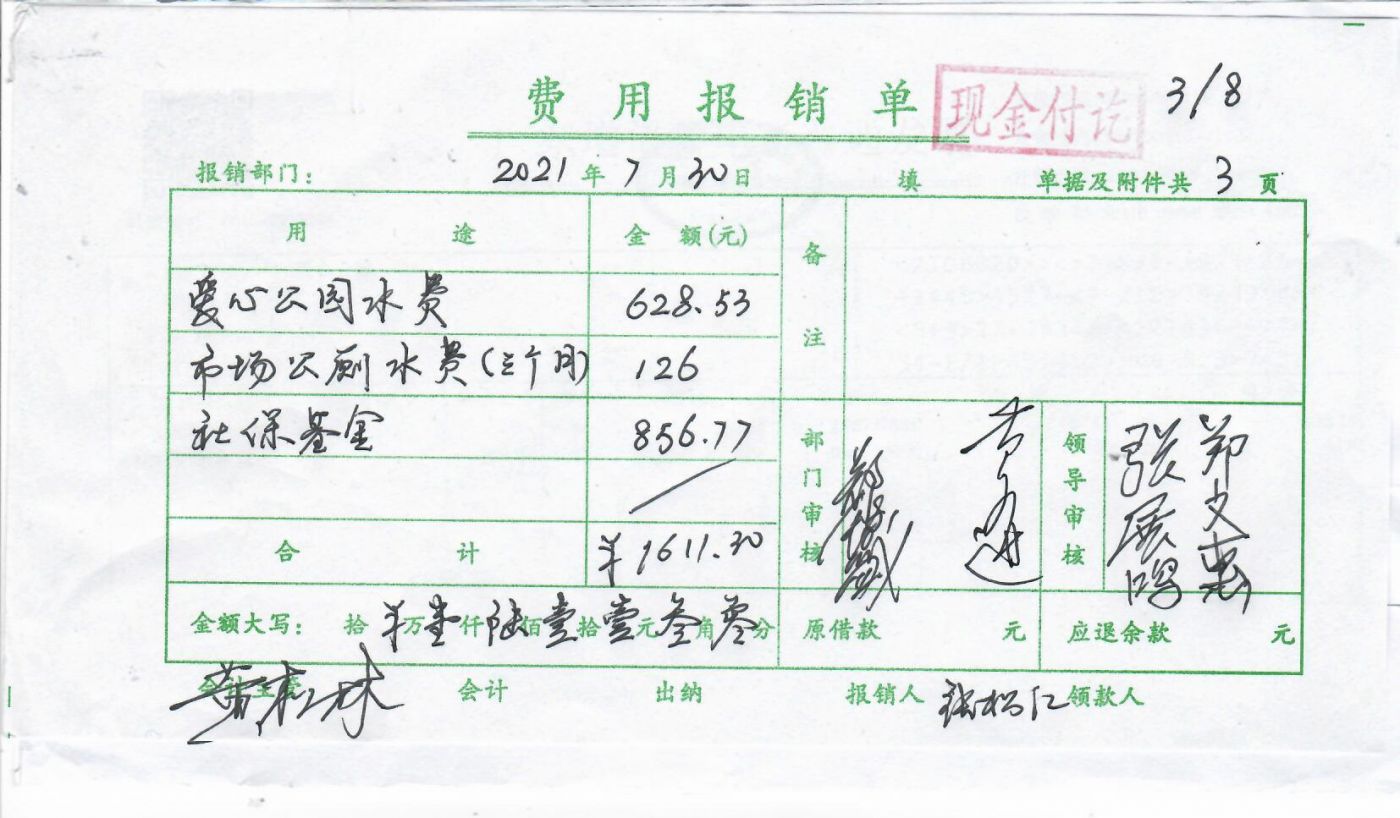 费用报销单 现金付讫 3/8
报销部门： 2021年7月30日 填 单据及附件共3页
用途 金额(元) 备注
爱心公园水费 628.53
市场公厕水费(三个月) 126
社保基金 856.77
部门审核 领导审核 张展鸿 郑文惠
合计 ¥1611.30
金额大写： 拾¥万壹仟陆佰壹拾壹元叁角零分 原借款 元 应退余款 元
会计主管 会计 出纳 报销人 张松仁 领款人